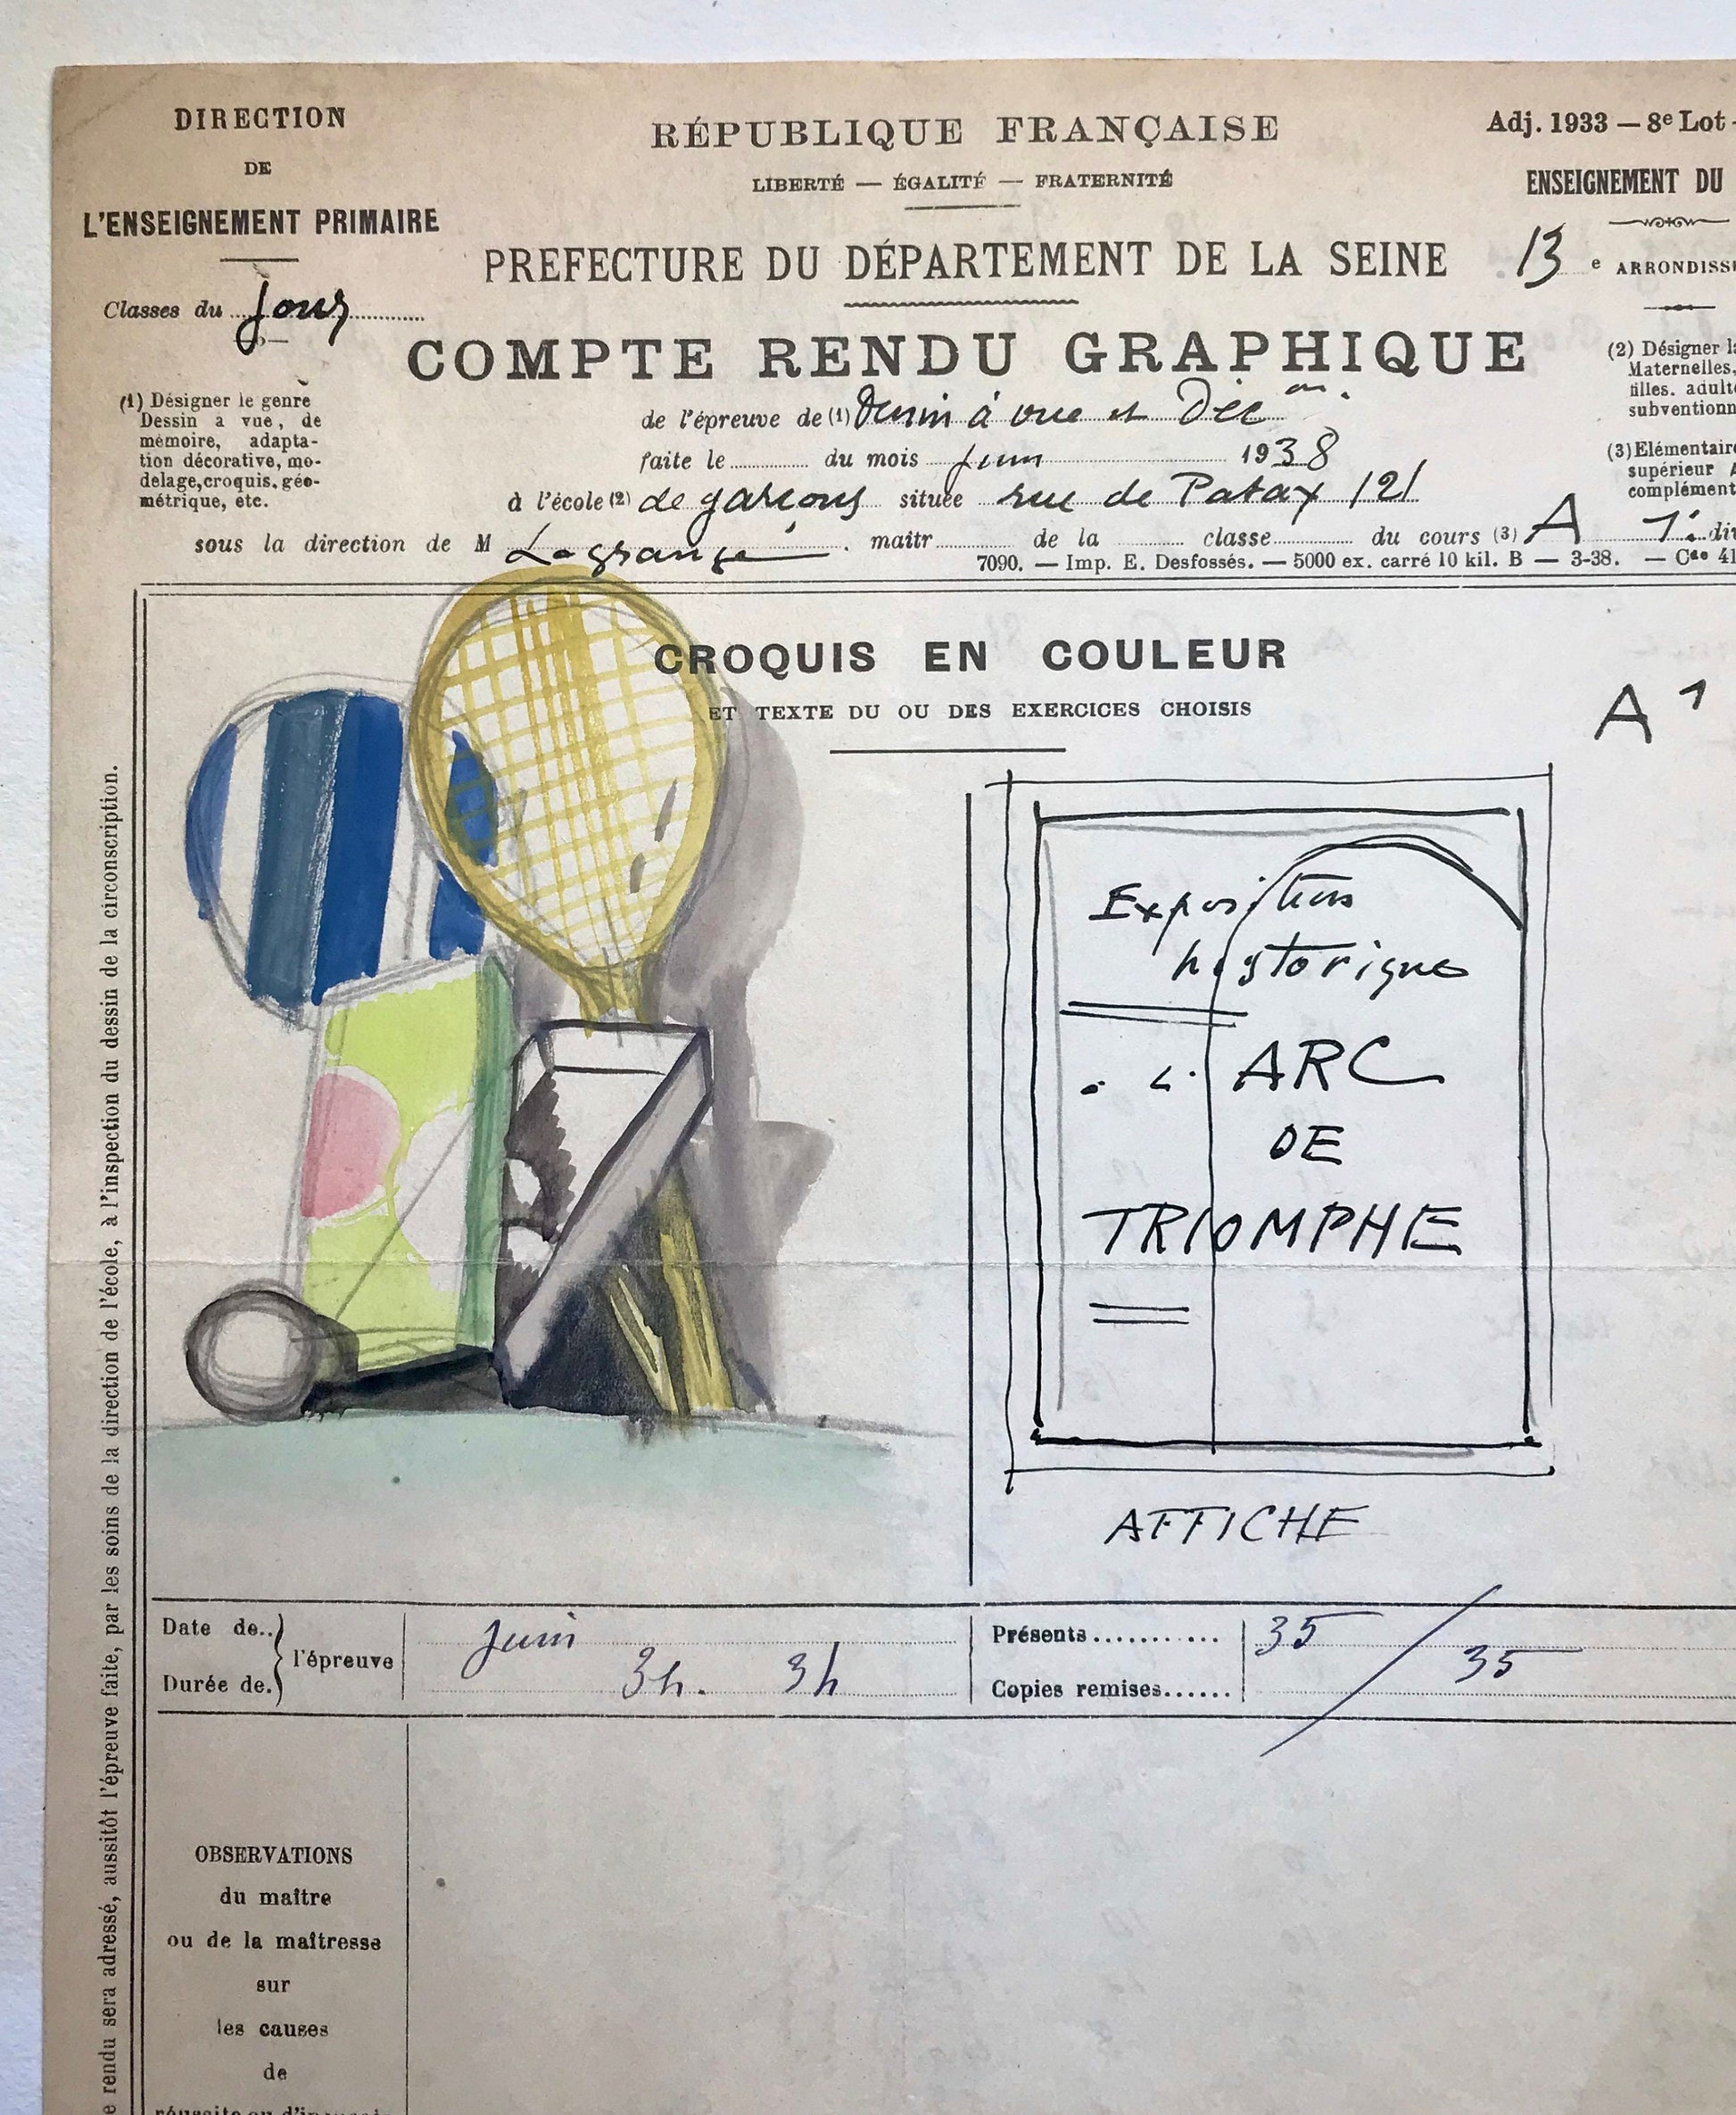 DIRECTION
DE
L'ENSEIGNEMENT PRIMAIRE
Classes du Jour
(1) Désigner le genre
Dessin a vue, de
mémoire, adapta-
tion décorative, mo-
delage, croquis, géo-
métrique, etc.
RÉPUBLIQUE FRANÇAISE
LIBERTÉ — ÉGALITÉ — FRATERNITÉ
PREFECTURE DU DÉPARTEMENT DE LA SEINE
COMPTE RENDU GRAPHIQUE
Adj. 1933 — 8e Lot -
ENSEIGNEMENT DU
13 e ARRONDISS
(2) Désigner la
Maternelles,
filles. adult
subventionn
(3) Elémentaire
supérieur
complément
de l'épreuve de (1) Dessin à vue et Déc on.
faite le du mois Juin 1938
à l'école (2) de garçons située rue de Patay 121
sous la direction de M Lagrange . maîtr de la classe du cours (3) A 1: div
7090. — Imp. E. Desfossés. — 5000 ex. carré 10 kil. B — 3-38. — Cde 41
CROQUIS EN COULEUR
ET TEXTE DU OU DES EXERCICES CHOISIS
A 1
Exposition
hystorique
L' ARC
DE
TRIOMPHE
AFFICHE
Date de..
Durée de.
l'épreuve
Juin
3h. 3h
Présents........... 35
Copies remises...... 35
OBSERVATIONS
du maître
ou de la maîtresse
sur
les causes
de
e rendu sera adressé, aussitôt l'épreuve faite, par les soins de la direction de l'école, à l'inspection du dessin de la circonscription.